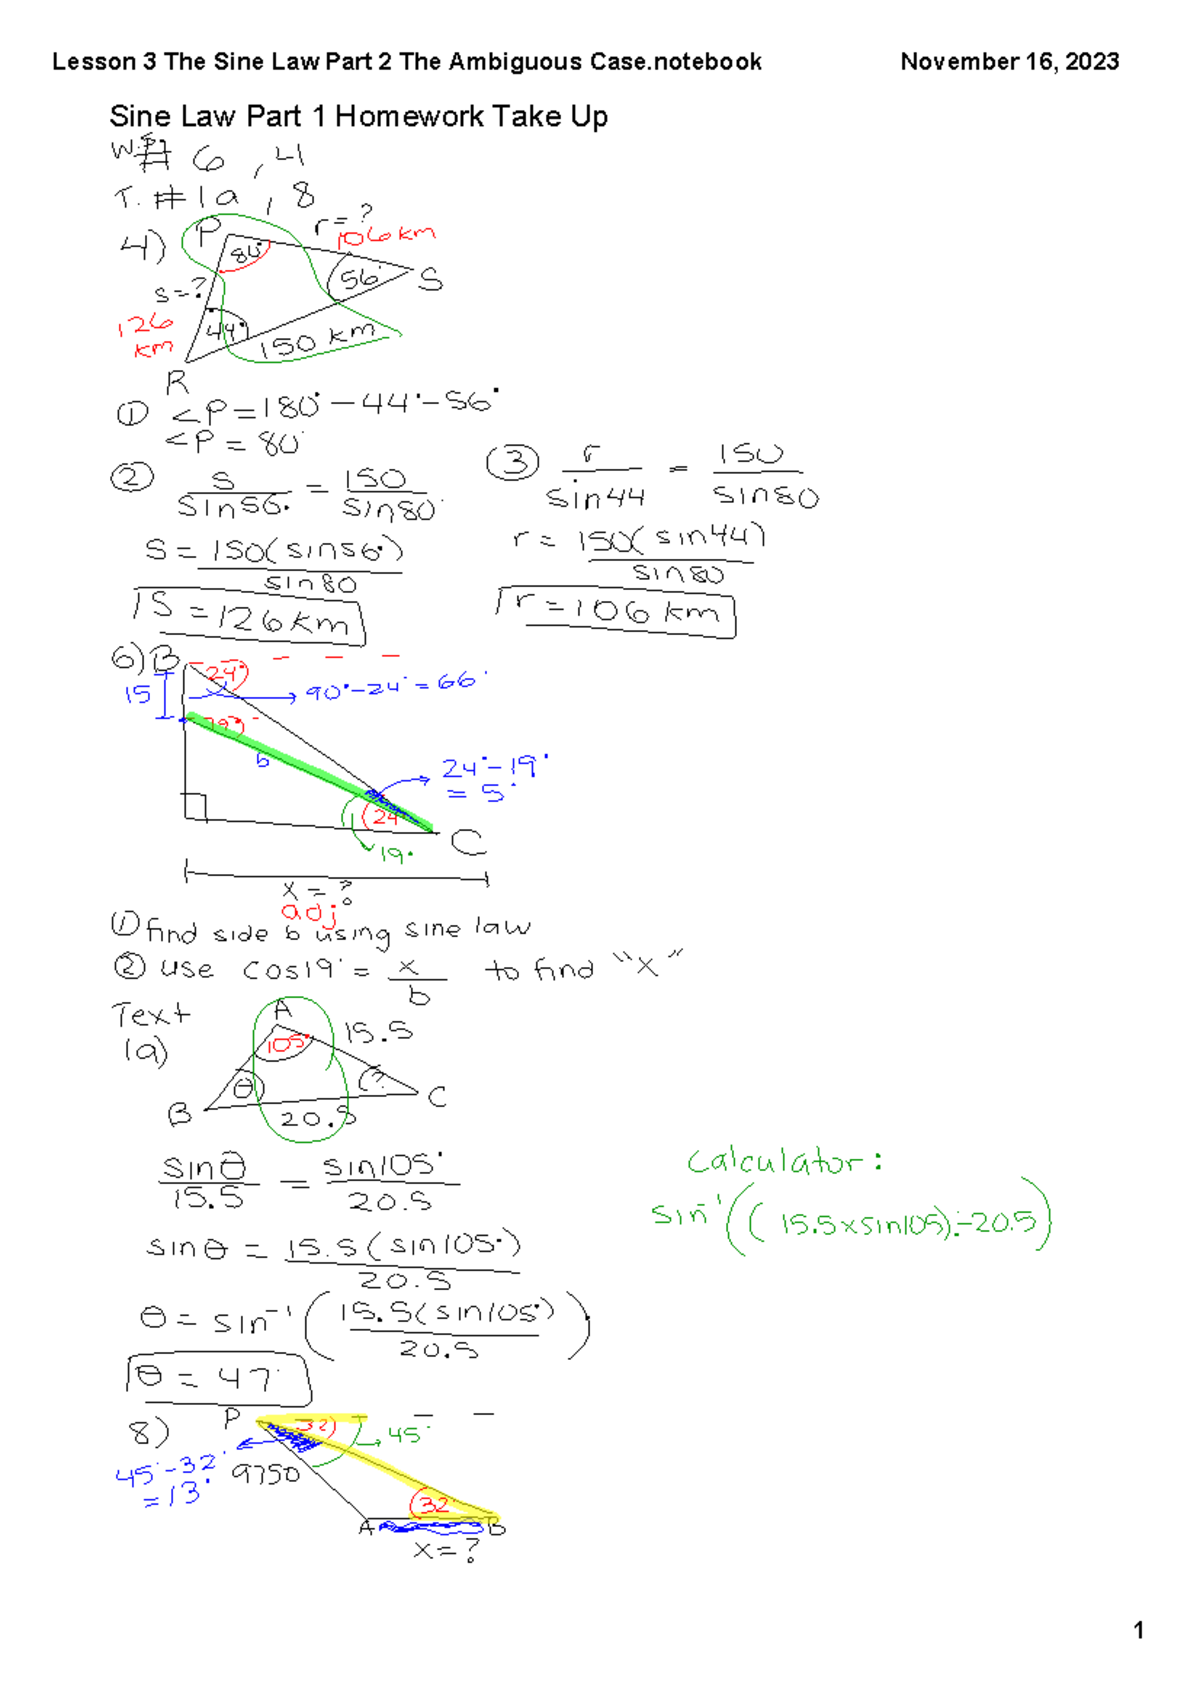 Lesson 3 The Sine Law Part 2 The Ambiguous Case.notebook
November 16, 2023
Sine Law Part 1 Homework Take Up
# 6 , 4
T. # 1a , 8
4)
P
r = ?
106 km
80°
56°
S
s = ?
126
km
44°
150 km
R
① <P = 180° - 44° - 56°
<P = 80°
② s/sin56° = 150/sin80°
s = 150(sin56°)/sin80
s = 126 km
③ r/sin44 = 150/sin80
r = 150(sin44)/sin80
r = 106 km
6) B
24°
15
90° - 24° = 66°
19°
b
24° - 19°
= 5°
24
C
19°
x = ?
adj
① find side b using sine law
② use cos19° = x/b to find "x"
Text
1a)
A
105°
15.5
θ
?
B
20.5
C
sinθ/15.5 = sin105°/20.5
sinθ = 15.5(sin105°)/20.5
θ = sin⁻¹(15.5(sin105°)/20.5)
θ = 47°
Calculator:
sin⁻¹((15.5xsin105)÷20.5)
8)
P
32
45°
45° - 32°
= 13°
9750
32
A
B
x = ?
1